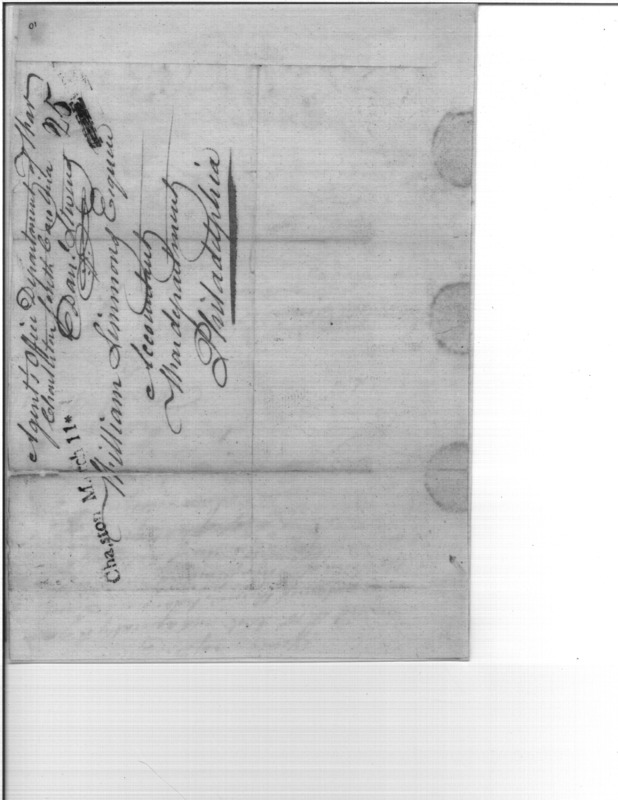 Agent's Office Department of War
Charleston South Carolina 25
Danl Stevens
Cha.ston March 11*
William Simmons Esquire
Accountant
War department
Philadelphia